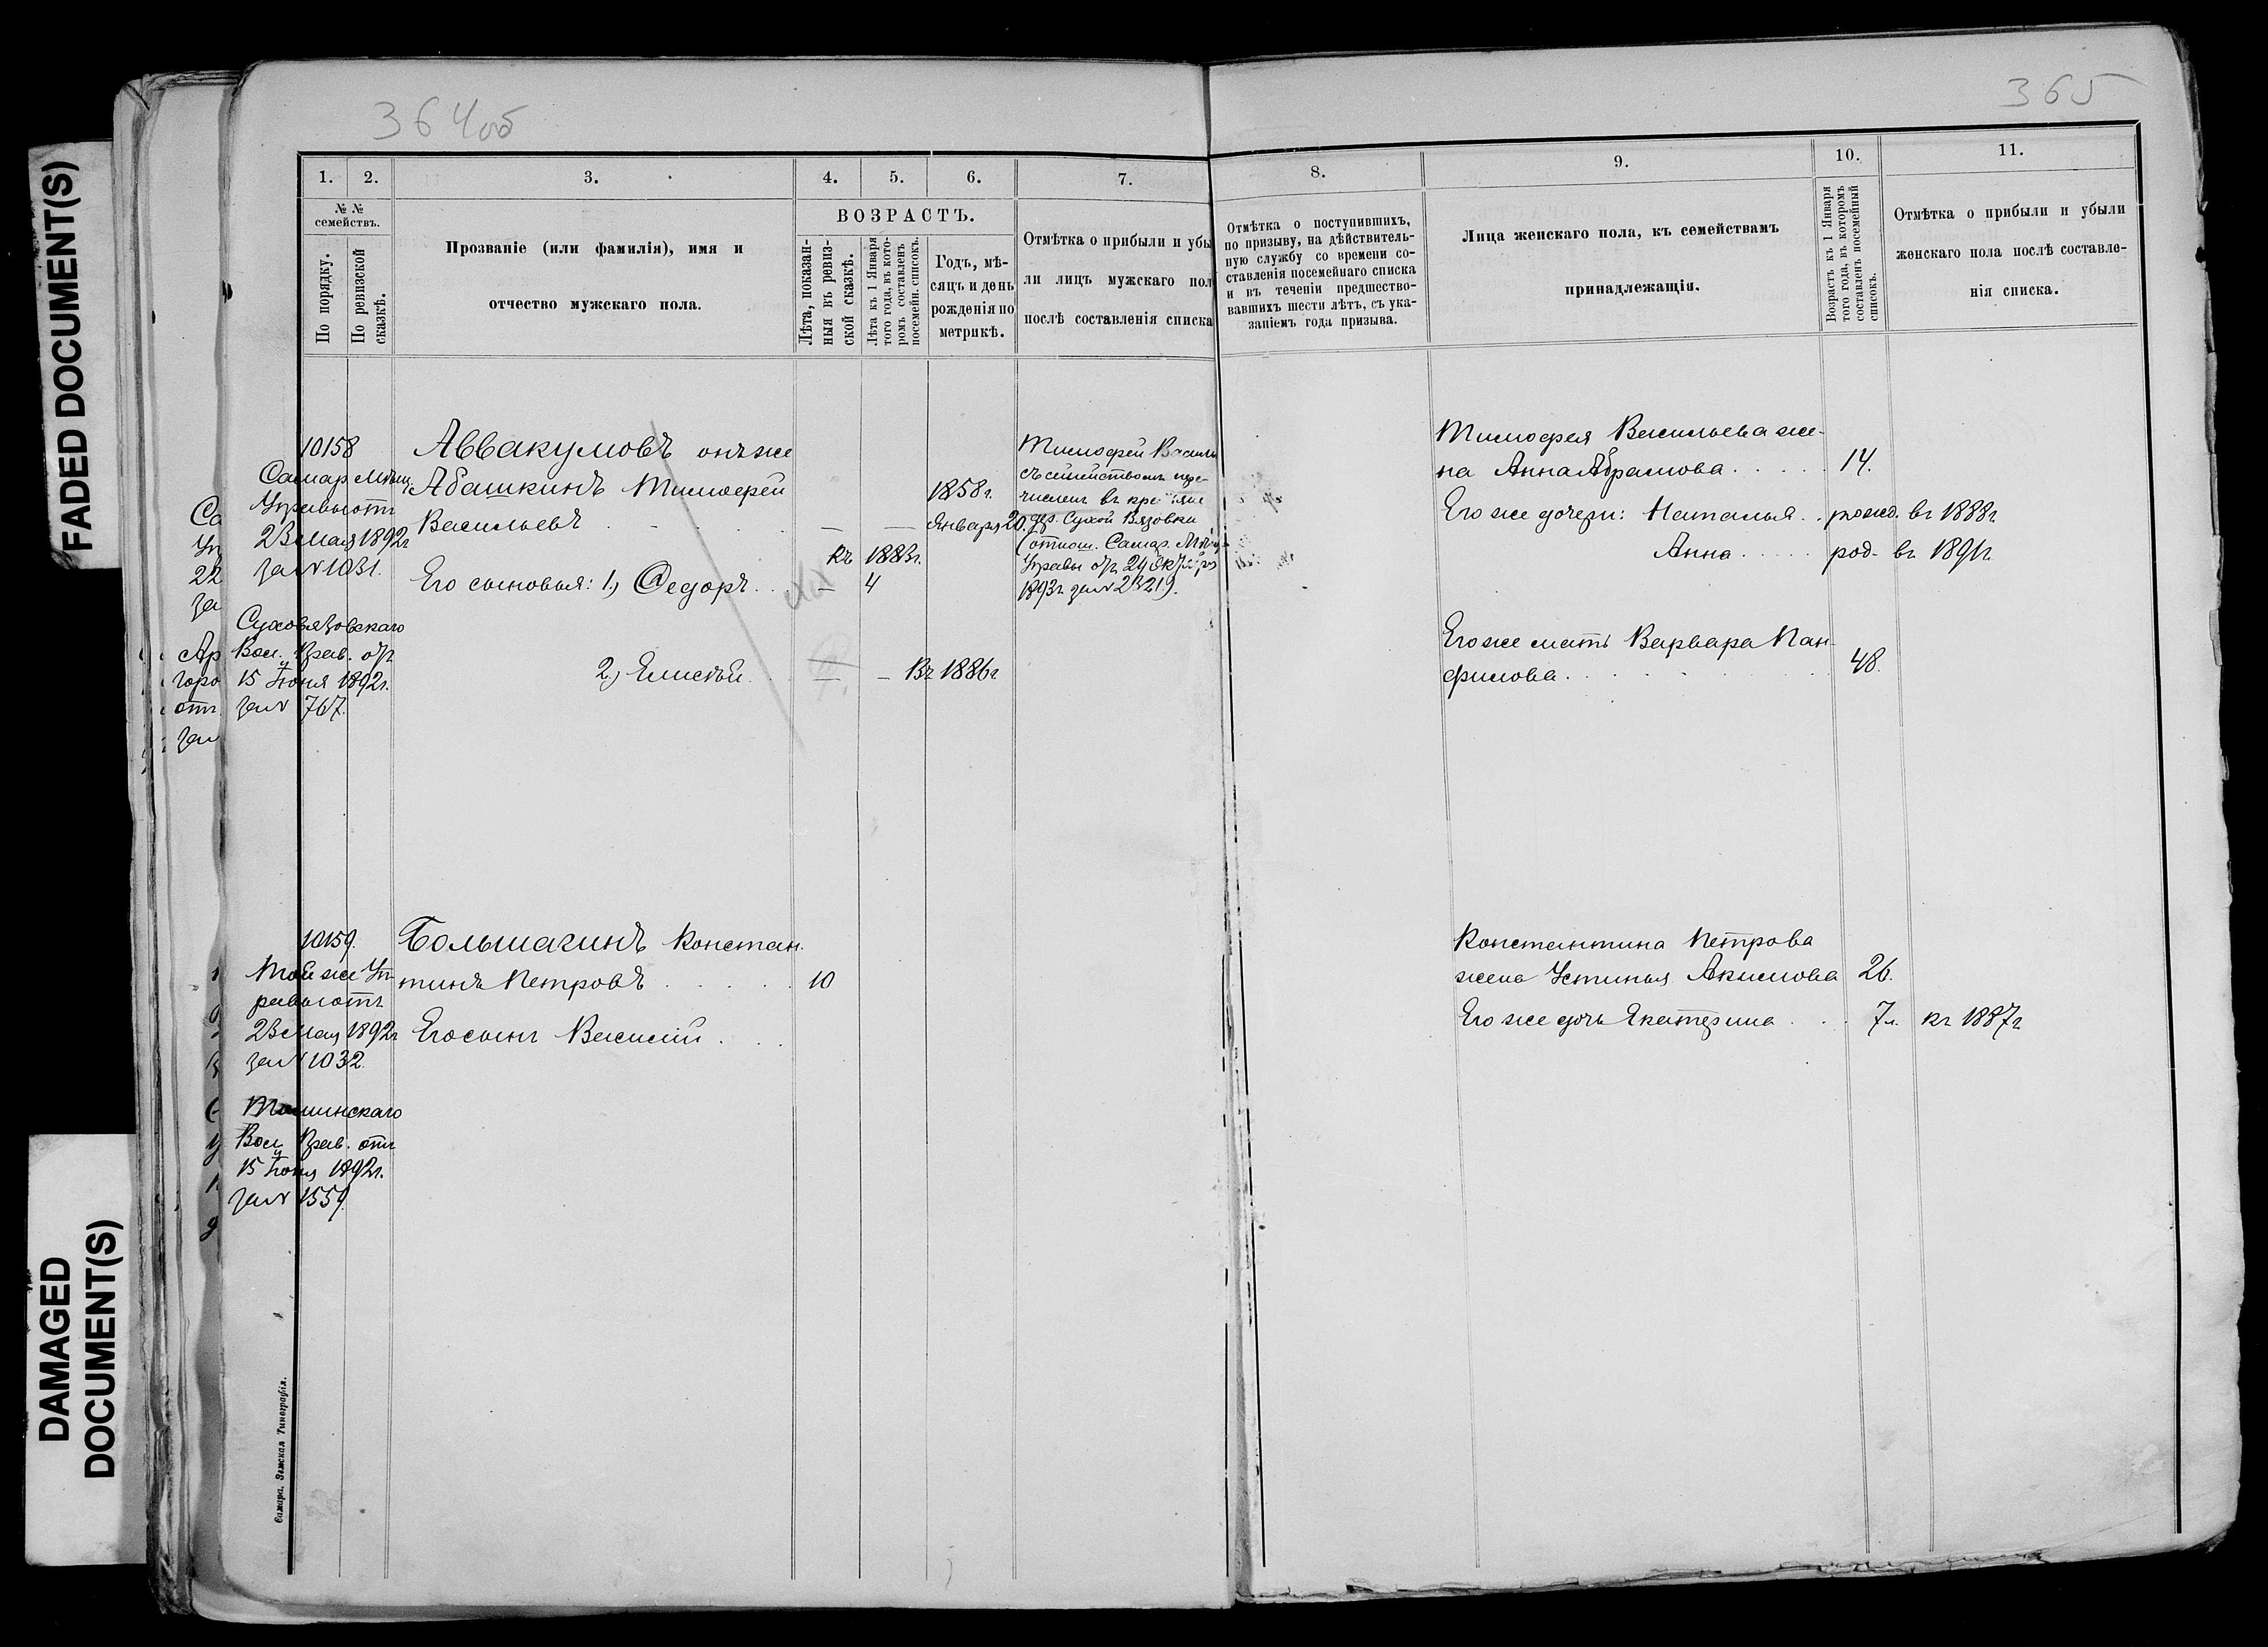 364об
365
FADED DOCUMENT(S)
DAMAGED
DOCUMENT(S)
1.
2.
3.
4.
5.
6.
7.
8.
9.
10.
11.
№ №
семействъ.
По порядку.
По ревизской
сказкѣ.
Прозваніе (или фамилія), имя и
отчество мужскаго пола.
ВОЗРАСТЪ.
Лѣта, показан-
ныя въ ревиз-
ской сказкѣ.
Лѣта къ 1 Января
того года, въ кото-
ромъ составленъ
посемейн. списокъ.
Годъ, мѣ-
сяцъ и день
рожденія по
метрикѣ.
Отмѣтка о прибыли и убы
ли лицъ мужскаго пол
послѣ составленія списка
Отмѣтка о поступившихъ,
по призыву, на дѣйствитель-
ную службу со времени со-
ставленія посемейнаго списка
и въ теченіи предшество-
вавшихъ шести лѣтъ, съ ука-
заніемъ года призыва.
Лица женскаго пола, къ семействамъ
принадлежащія.
Возрастъ къ 1 Января
того года, въ которомъ
составленъ посемейный
списокъ.
Отмѣтка о прибыли и убыли
женскаго пола послѣ составле-
нія списка.
10158
Самар. Мѣщ.
Управы отъ
23 Мая 1892г
за № 1031.
Суховязовскаго
Вол. Прав. отъ
15 Іюня 1892г.
за № 767.
Аввакумовъ онъ же
Абашкинъ Тимофей
Васильевъ
1858 г.
Января 20.
Къ 1883г.
Его сыновья: 1, Ѳедоръ
4
2, Елисѣй
Въ 1886г
Тимофей Василь
съ семействомъ пере-
численъ въ крестьяне
дер. Сухой Вязовки
(отнош. Самар. Мѣщ.
Управы отъ
1893г за №
Тимофея Васильева же-
на Анна Абрамова
14.
Его же дочери: Наталья
рожд. въ 1888г.
Анна
род. въ 1891г.
Его же мать Варвара Пан-
филова
48.
10159.
Той же Уп-
равы отъ
23 Мая 1892г
за № 1032.
Вол. Прав. отъ
15 Іюня 1892г.
за № 1559.
Большагинъ Констан-
тинъ Петровъ
10
Его сынъ Василій
Константина Петрова
жена Устинья Акимова
26.
Его же дочь Екатерина
7 л.
къ 1887г
Самара. Земская Типографія.